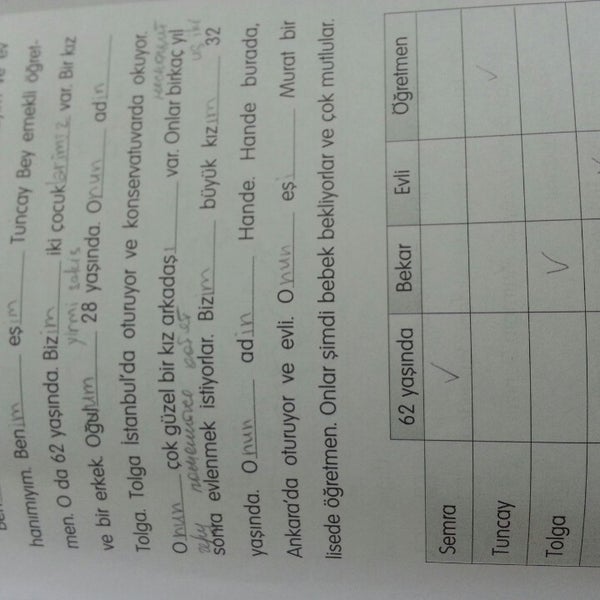 hanımıyım. Benim eşim Tuncay Bey emekli öğret-
men. O da 62 yaşında. Bizim iki çocuklarimiz var. Bir kız
yirmi sakis
ve bir erkek. Oğulum 28 yaşında. Onun adin
Tolga. Tolga İstanbul'da oturuyor ve konservatuvarda okuyor.
Onun çok güzel bir kız arkadaşı var. Onlar birkaç yıl
sonra evlenmek istiyorlar. Bizim büyük kızım 32
yaşında. Onun adin Hande. Hande burada,
Ankara'da oturuyor ve evli. Onun eşi Murat bir
lisede öğretmen. Onlar şimdi bebek bekliyorlar ve çok mutlular.
62 yaşında Bekar Evli Öğretmen
Semra ✓
Tuncay ✓
Tolga ✓